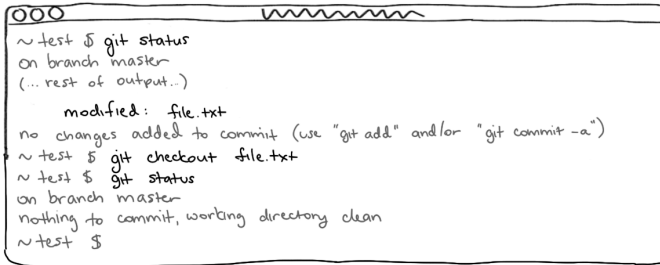 ~ test $ git status
on branch master
(... rest of output...)
modified: file.txt
no changes added to commit (use "git add" and/or "git commit -a")
~ test $ git checkout file.txt
~ test $ git status
on branch master
nothing to commit, working directory clean
~ test $